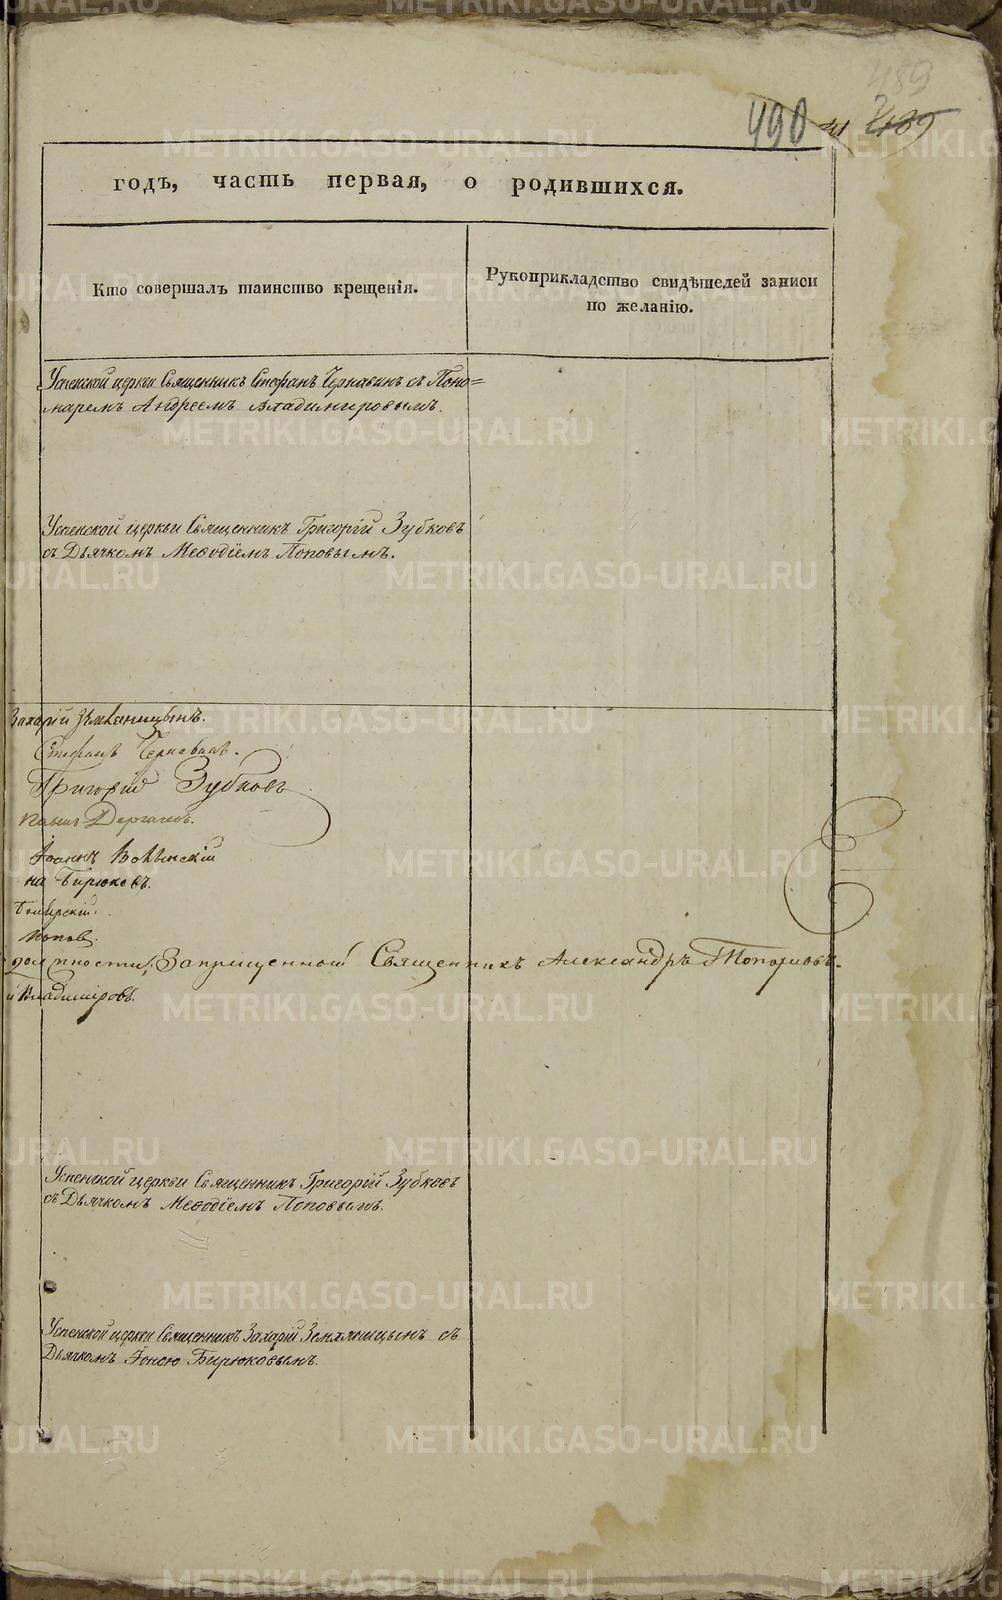 489
490 41 489
годъ, часть первая, о родившихся.
Кто совершалъ таинство крещенія.
Рукоприкладство свидѣтелей записи
по желанію.
Успенской церкви Священникъ Стефанъ Чернавинъ съ Поно=
маремъ Андреемъ Владимировымъ.
Успенской церкви Священникъ Григорій Зубковъ
съ Дьячкомъ Меѳодіемъ Поповымъ.
Захарій Земляницынъ.
Стефанъ Чернавинъ.
Григорій Зубковъ
Іоаннъ Волынскій
на Бирюковъ.
Поповъ.
должности, Запрещенный Священникъ Александръ Топорковъ.
й Владиміровъ.
Успенской церкви Священникъ Григорій Зубковъ
съ Дьячкомъ Меѳодіемъ Поповымъ.
Успенской церкви Священникъ Захарій Земляницынъ съ
Дьячкомъ Іоною Бирюковымъ.
METRIKI.GASO-URAL.RU